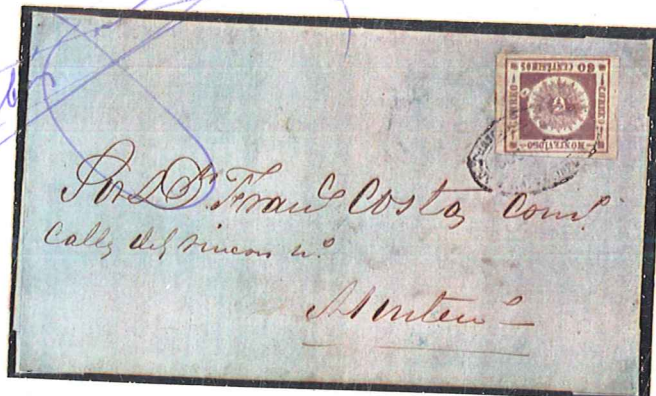 80 CENTESIMOS
CORREO
CORREO
MONTEVIDEO
Sor Dn Franco Costa, Como
Calle del rincon no
Montevo